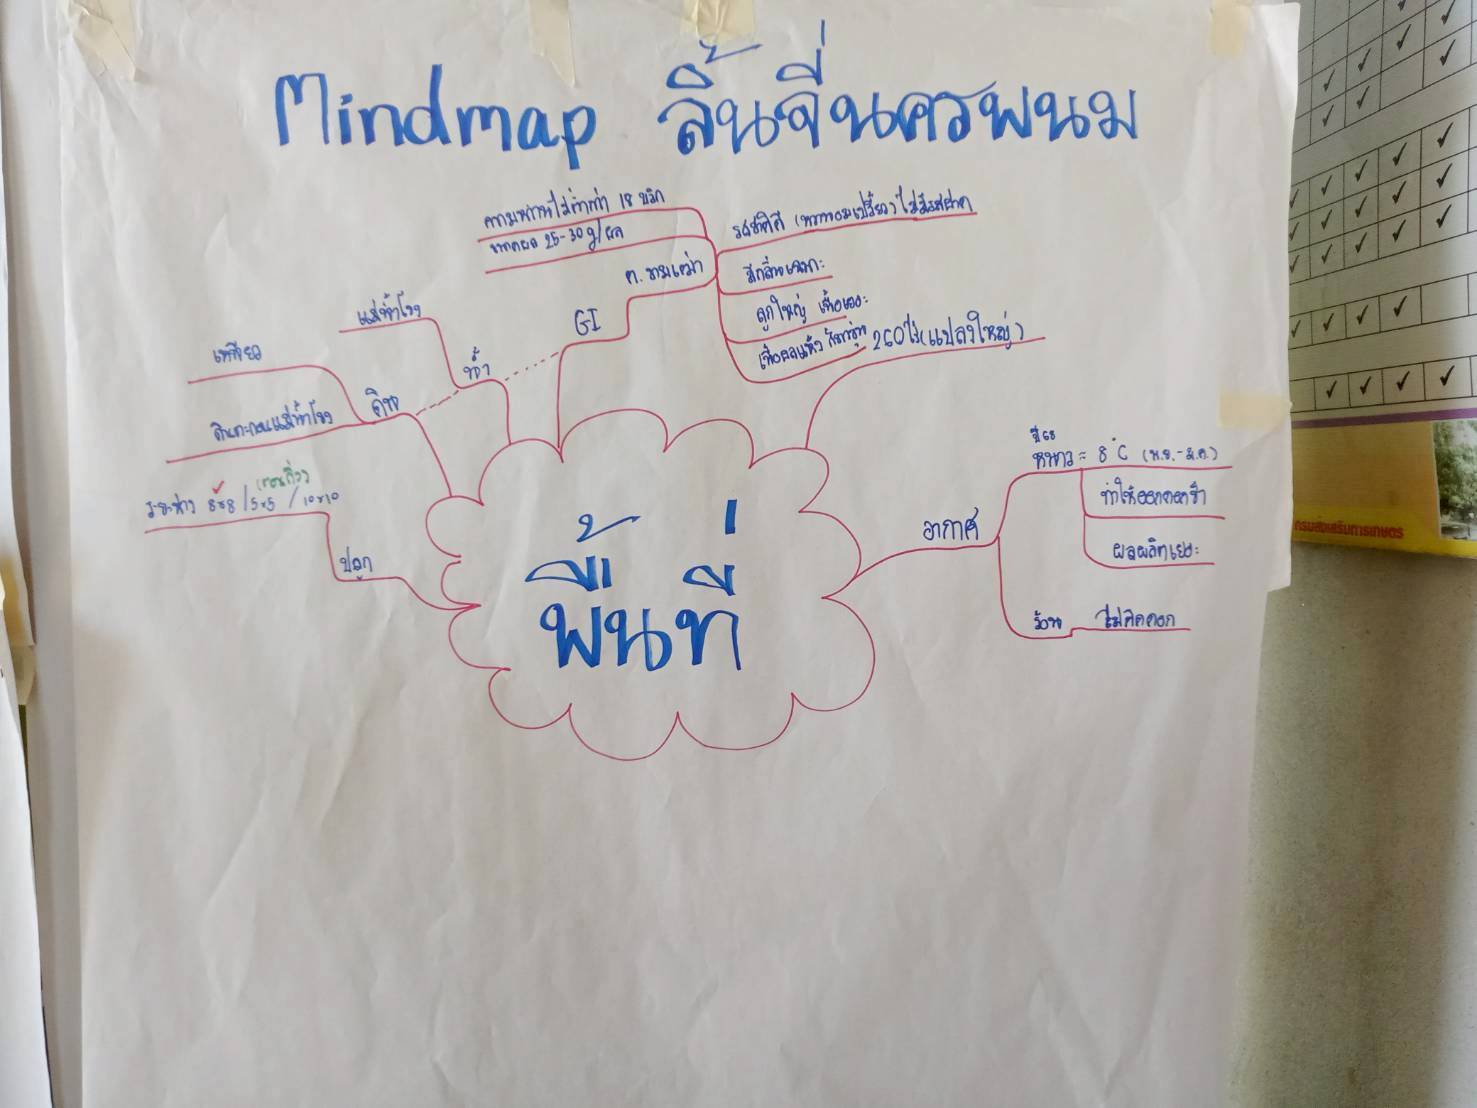 Mindmap ลิ้นจี่นครพนม
ความหวานไม่ต่ำกว่า 18 บริก
ขนาดผล 25-30 g/ผล
รสชาติดี (หวานอมเปรี้ยว) ไม่มีรสฝาด
ต. ขามเฒ่า
มีกลิ่นเฉพาะ
ลูกใหญ่ เนื้อเยอะ
เนื้อผลแห้ง
260 ไร่ (แปลงใหญ่)
GI
แม่น้ำโขง
น้ำ
เหนียว
ดิน
ดินตะกอนแม่น้ำโขง
(ตอนกิ่ง)
ระยะห่าง 8x8 / 5x5 / 10x10
ปลูก
พื้นที่
อากาศ
ปี 68
หนาว = 8°C (พ.ย.-ม.ค.)
ทำให้ออกดอกช้า
ผลผลิตเยอะ
ร้อน ไม่ติดดอก
กรมส่งเสริมการเกษตร